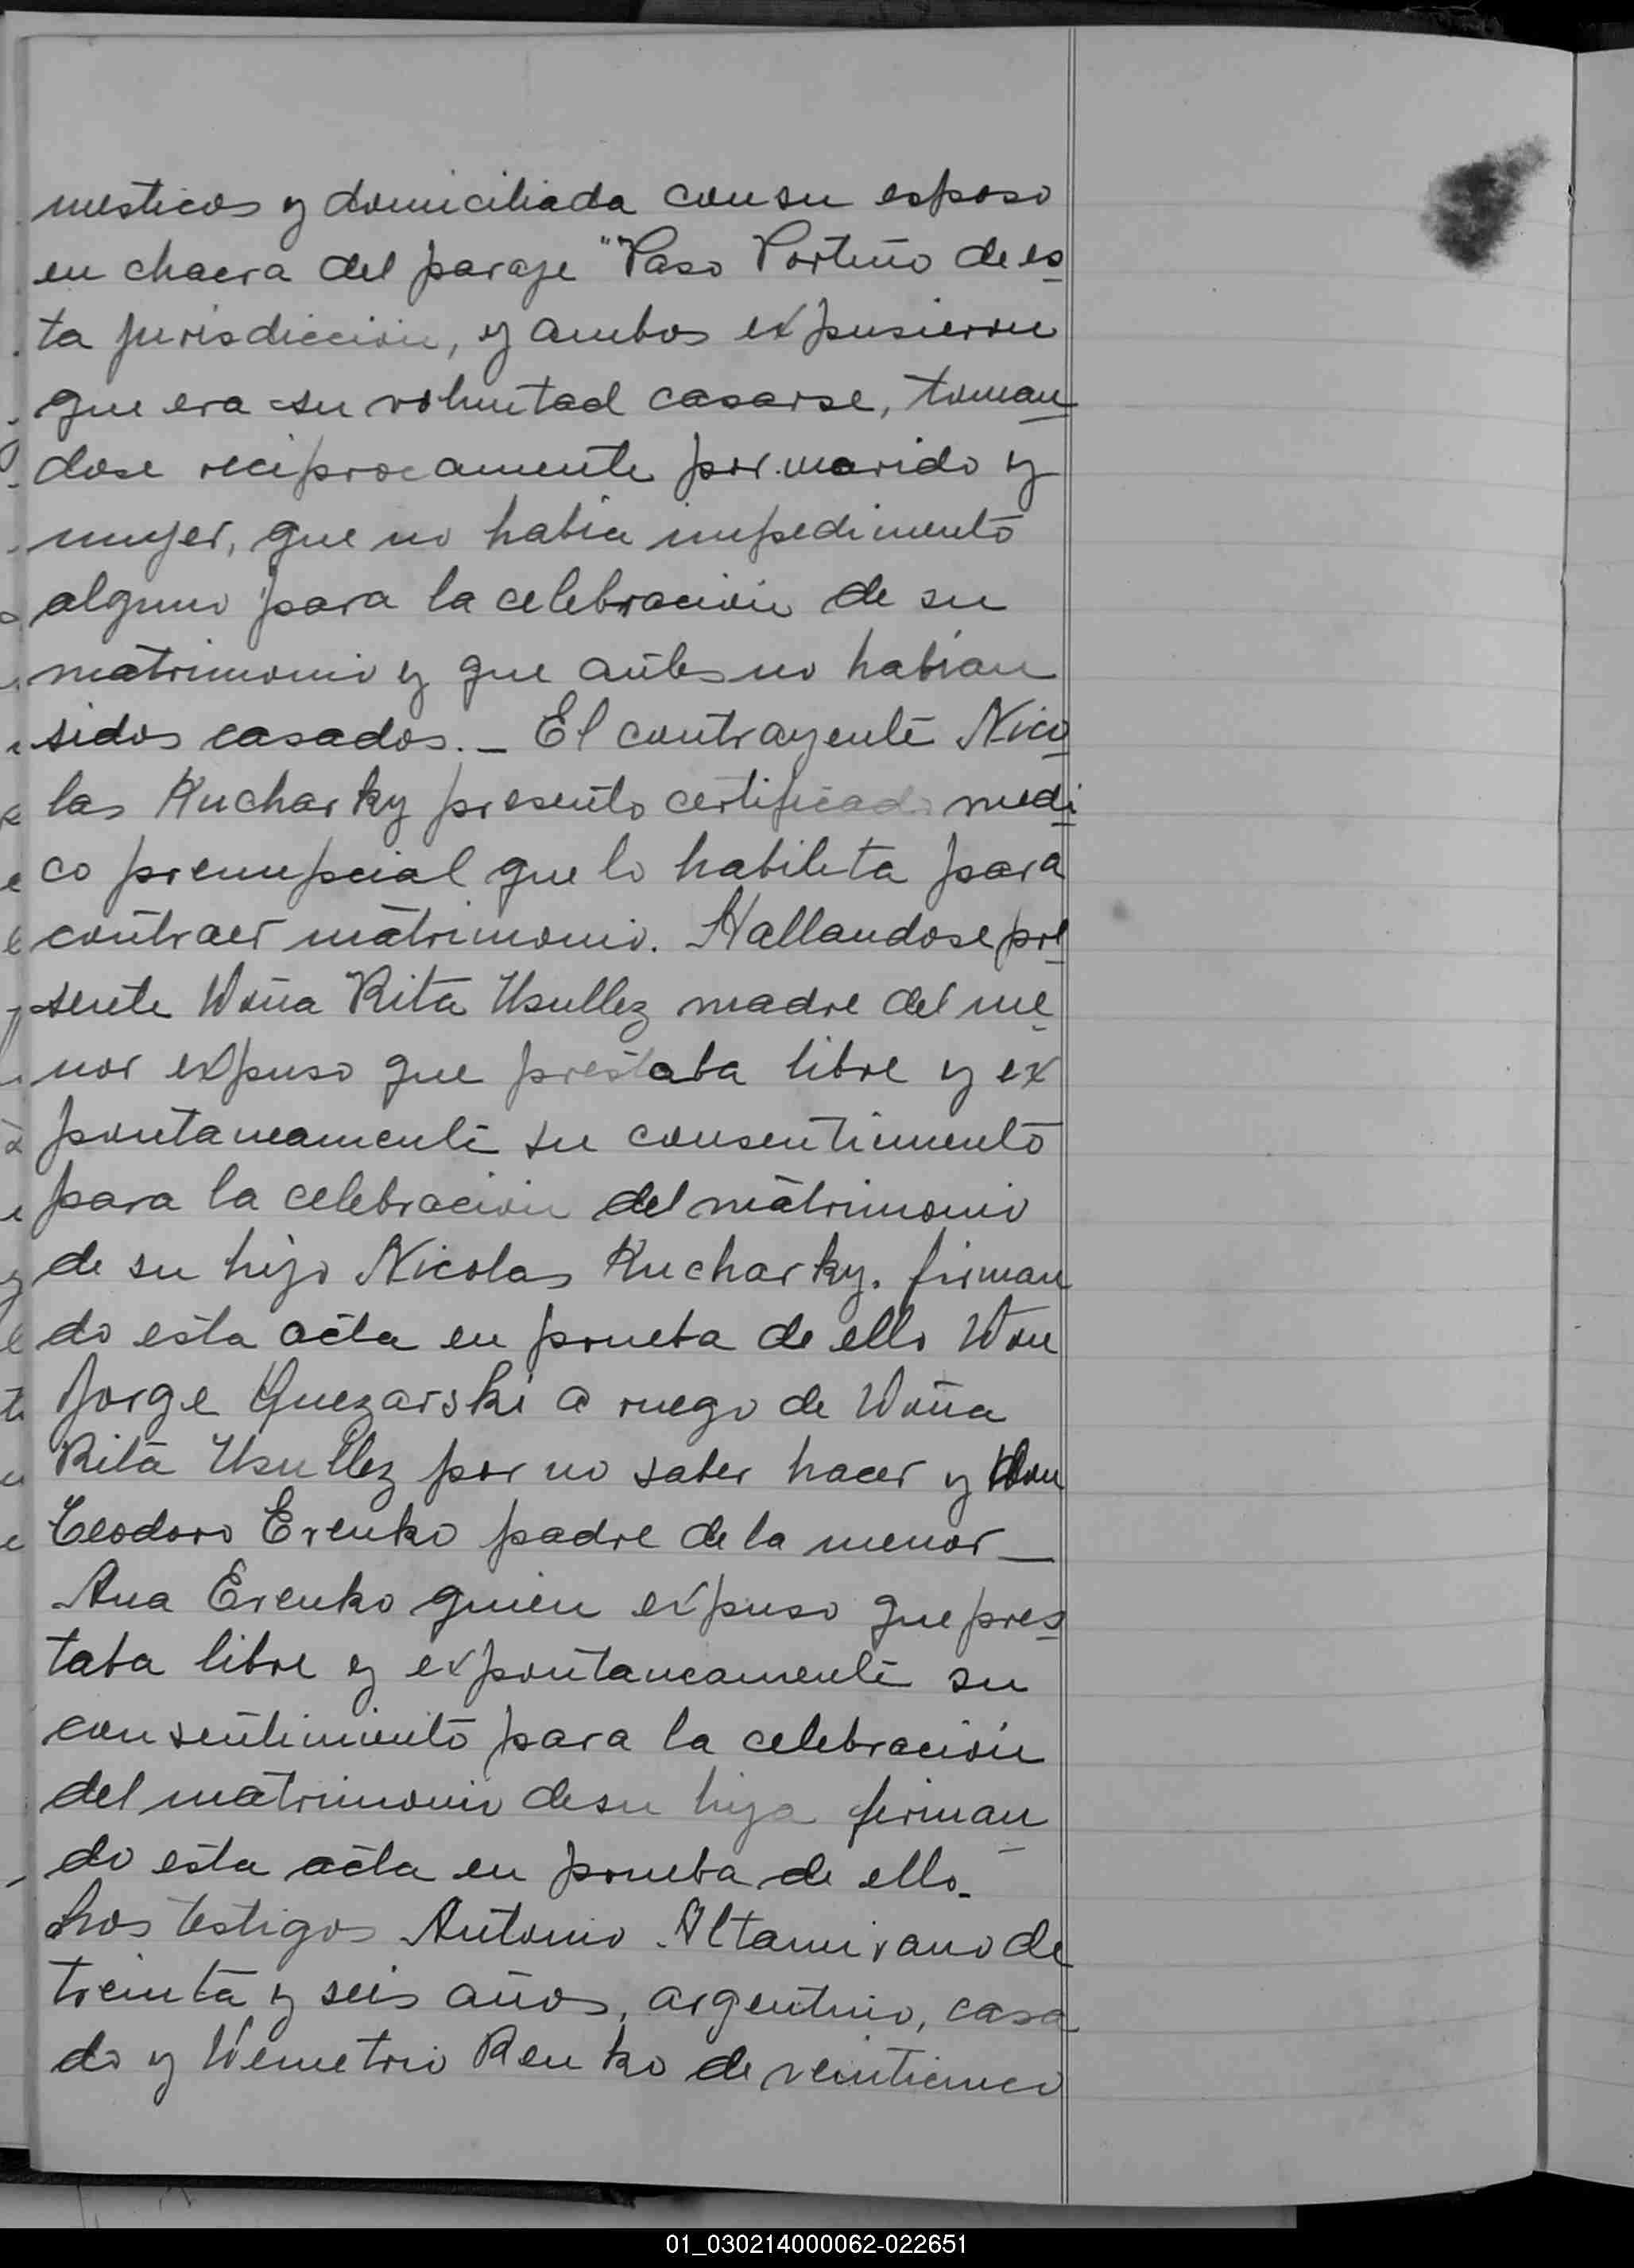 mesticos y domiciliada con su esposo
en chacra del paraje "Paso Porteño de es
ta jurisdiccion, y ambos expusieron
que era su voluntad casarse, toman
dose reciprocamente por marido y
mujer, que no habia impedimento
alguno para la celebracion de su
matrimonio y que antes no habian
sidos casados._ El contrayente Nico
las Kucharky presento certificado medi
co prenupcial que lo habilita para
contraer matrimonio. Hallandose pre
sente Doña Rita Usullez madre del me
nor expuso que prestaba libre y ex
pontaneamente su consentimento
para la celebracion del matrimonio
de su hijo Nicolas Kucharky. firman
do esta acta en prueba de ello Don
Jorge Guezarski a ruego de Doña
Rita Usullez por no saber hacer y Don
Teodoro Erenko padre de la menor _
Ana Erenko quien expuso que pres
taba libre y expontaneamente su
consentimiento para la celebración
del matrimonio de su hija firman
do esta acta en prueba de ello.
Los testigos Antonio Altamirano de
treinta y seis años, argentino, casa
do y Demetrio Renko de veinticinco
01_030214000062-022651